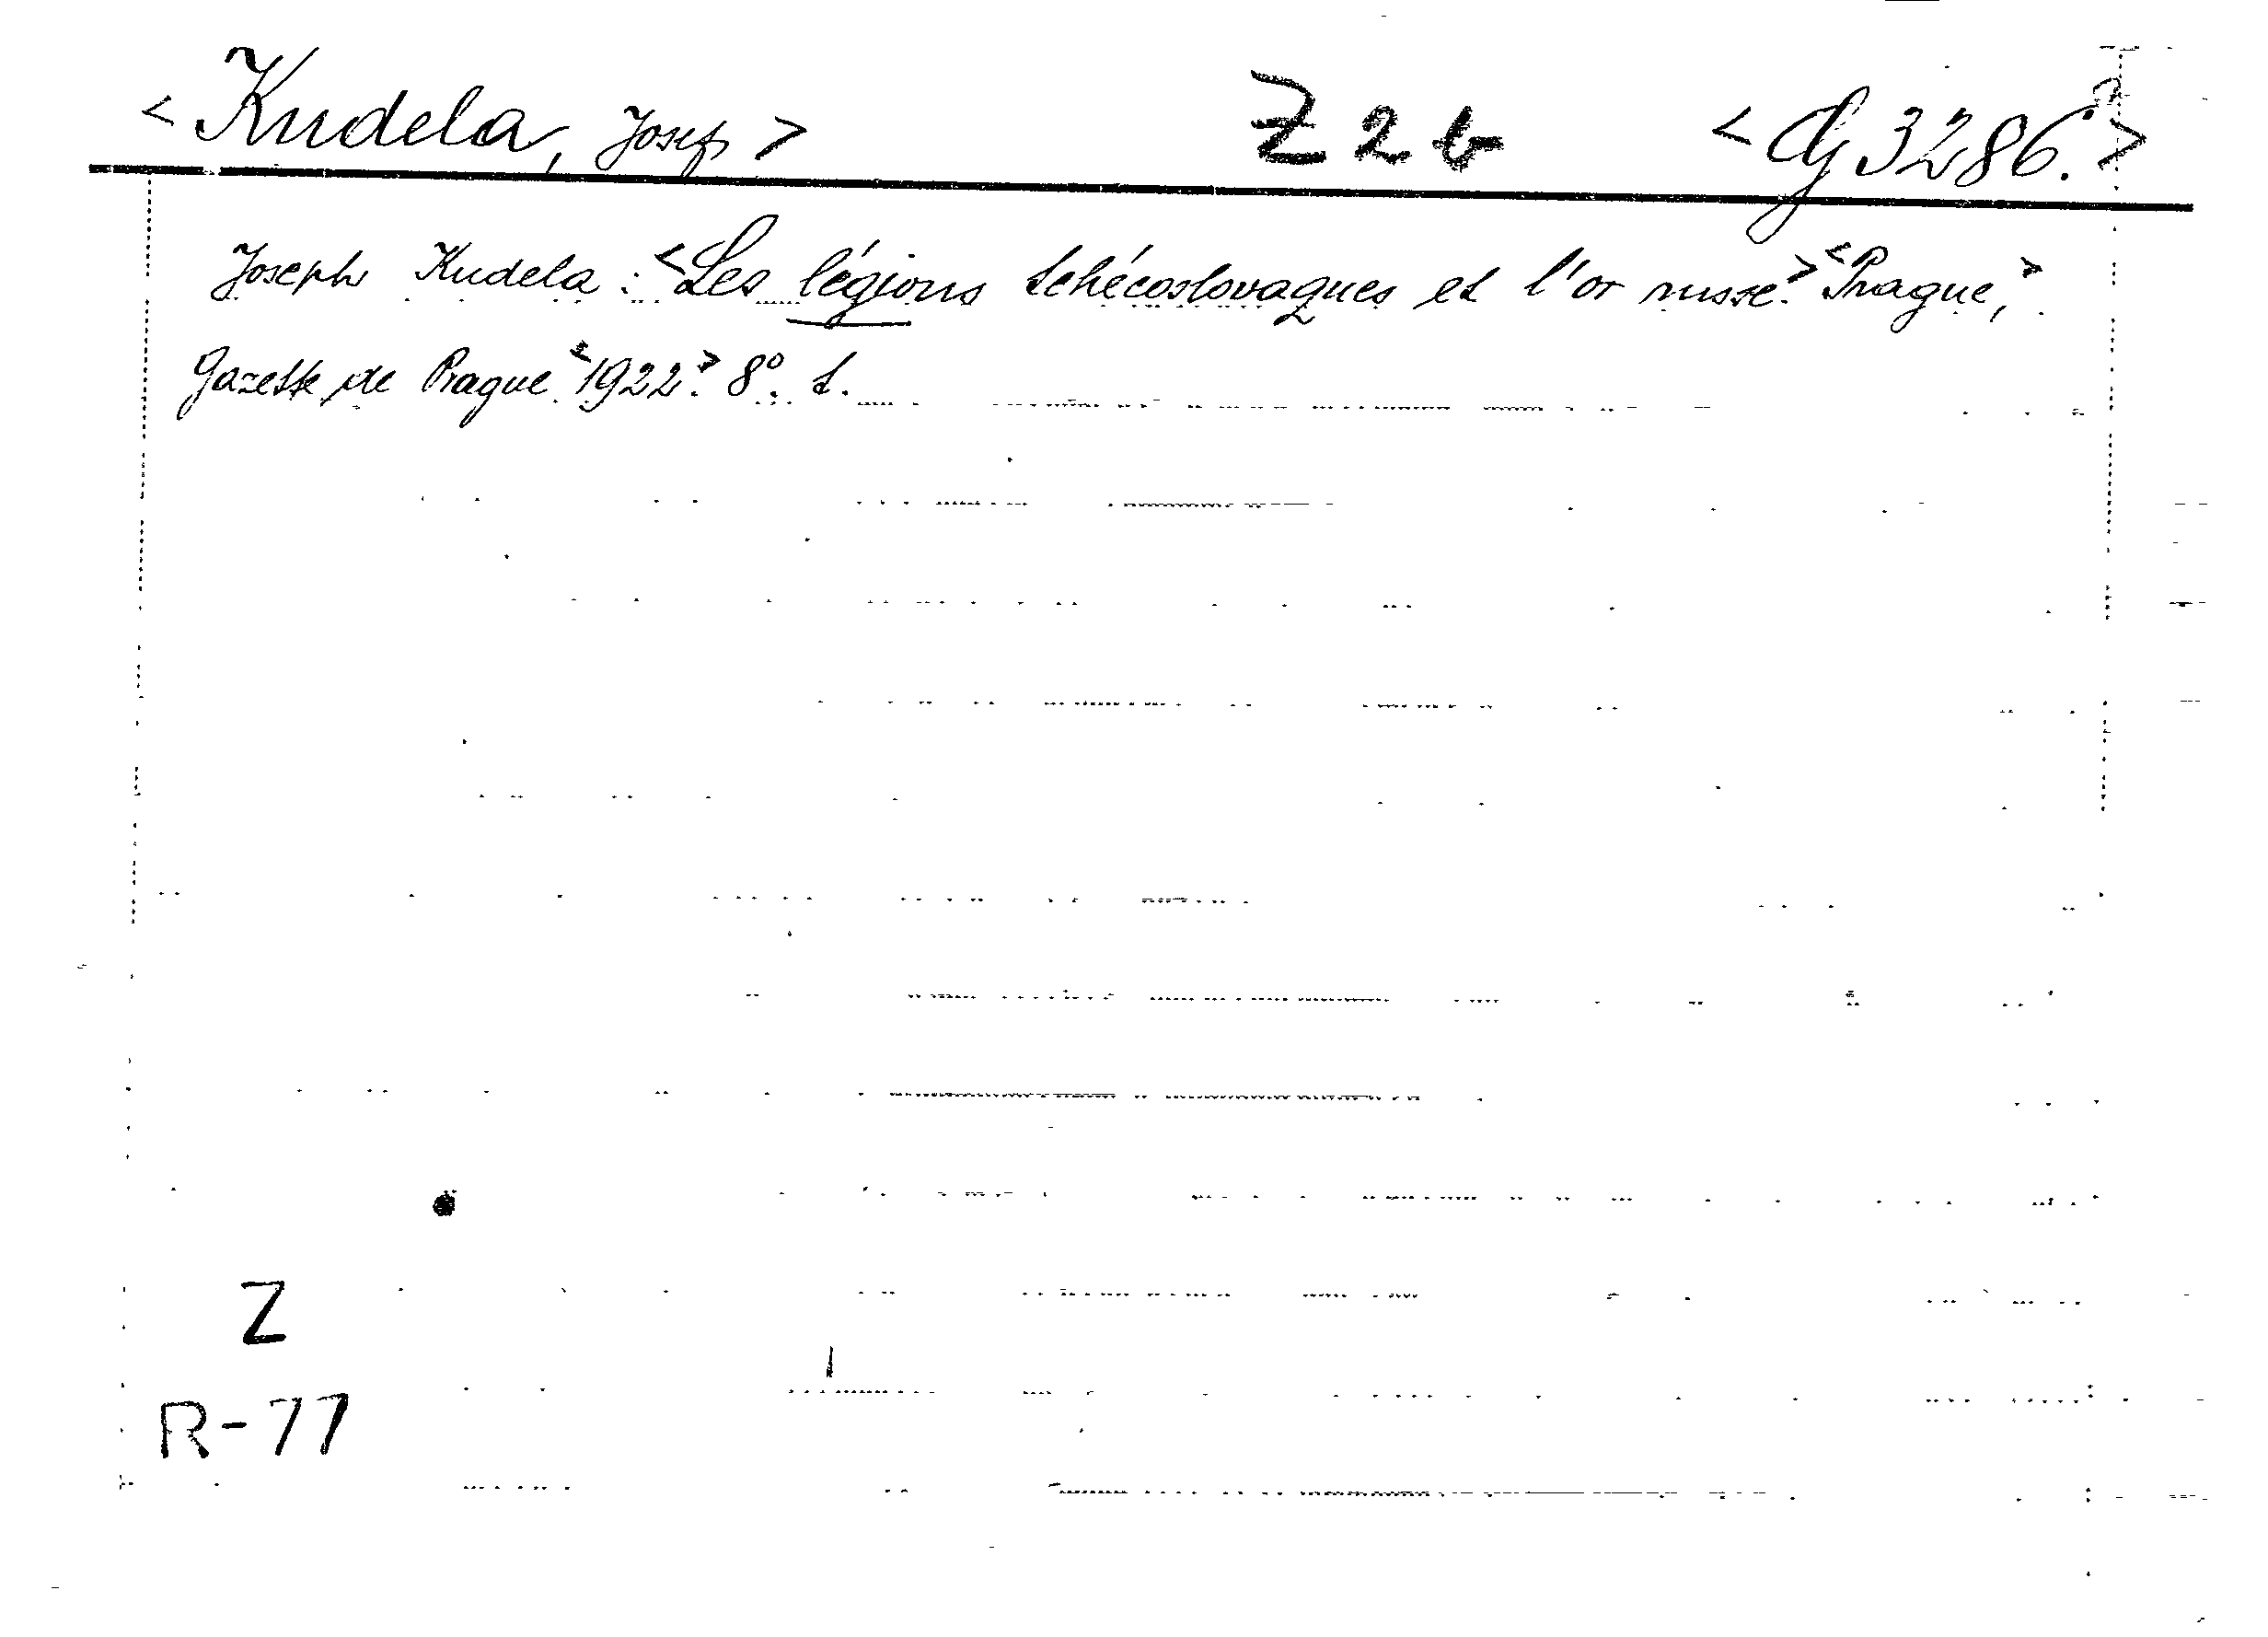 <Kudela, Josef> Z 2 b <G 3286.>
Joseph Kudela : <Les légions tchécoslovaques et l'or russe.> <Prague,>
Gazette de Prague <1922.> 8°. t.
Z
R-77